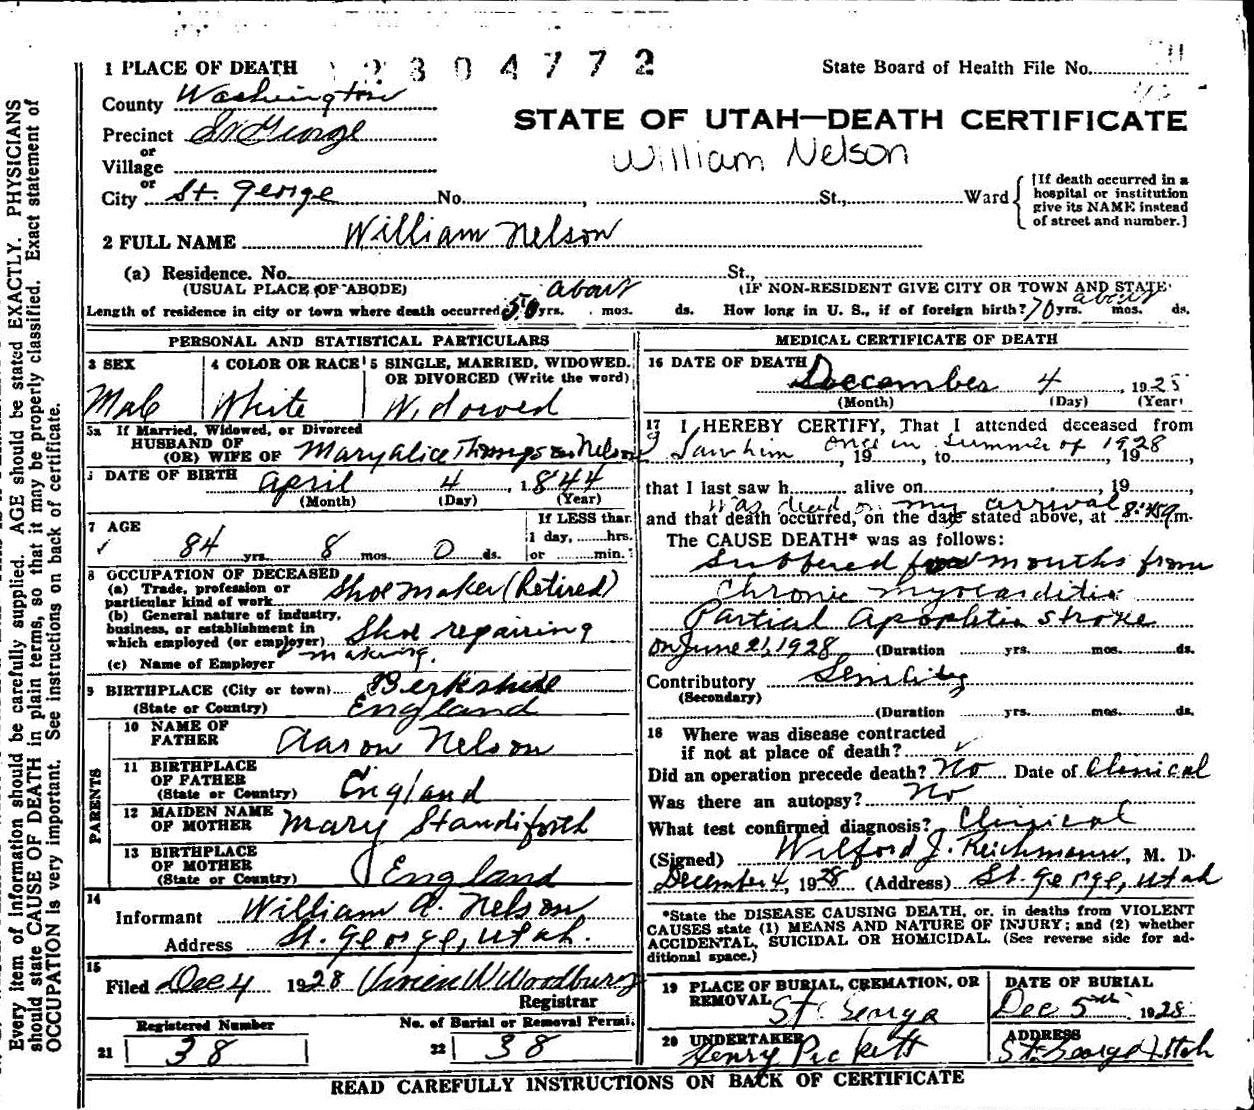 2304772
1 PLACE OF DEATH
State Board of Health File No.
County Washington
STATE OF UTAH—DEATH CERTIFICATE
Precinct St George
William Nelson
or
Village
or
City St. George No. , St., Ward
[If death occurred in a
hospital or institution
give its NAME instead
of street and number.]
2 FULL NAME William Nelson
(a) Residence. No. St.,
(USUAL PLACE OF ABODE) (IF NON-RESIDENT GIVE CITY OR TOWN AND STATE
about about
Length of residence in city or town where death occurred 50 yrs. mos. ds. How long in U. S., if of foreign birth? 70 yrs. mos. ds.
PERSONAL AND STATISTICAL PARTICULARS
3 SEX
Male
4 COLOR OR RACE
White
5 SINGLE, MARRIED, WIDOWED.
OR DIVORCED (Write the word)
Widowed
5a If Married, Widowed, or Divorced
HUSBAND OF
(OR) WIFE OF Mary Alice Thompson Nelson
DATE OF BIRTH April 4, 1844
(Month) (Day) (Year)
7 AGE
84 yrs. 8 mos. 0 ds.
If LESS than
1 day, hrs.
or min.?
8 OCCUPATION OF DECEASED
(a) Trade, profession or
particular kind of work Shoemaker (Retired)
(b) General nature of industry,
business, or establishment in
which employed (or employer) Shoe repairing
making.
(c) Name of Employer
9 BIRTHPLACE (City or town) Berkshire
(State or Country) England
PARENTS
10 NAME OF
FATHER Aaron Nelson
11 BIRTHPLACE
OF FATHER
(State or Country) England
12 MAIDEN NAME
OF MOTHER Mary Standiforth
13 BIRTHPLACE
OF MOTHER
(State or Country) England
14
Informant William A. Nelson
Address St. George, Utah.
15
Filed Dec 4 1928 Vivien W Woodbury
Registrar
Registered Number
21 38
No. of Burial or Removal Permi.
22 38
MEDICAL CERTIFICATE OF DEATH
16 DATE OF DEATH
December 4, 1925
(Month) (Day) (Year)
17 I HEREBY CERTIFY, That I attended deceased from
I saw him once in summer of 1928
, 19 , to , 19 ,
that I last saw h alive on , 19 ,
was dead on my arrival
and that death occurred, on the date stated above, at 8:45 m.
The CAUSE DEATH* was as follows:
Suffered for months from
Chronic myocarditis
Partial apoplectic stroke
on June 21, 1928 (Duration yrs. mos. ds.
Contributory Senility
(Secondary)
(Duration yrs. mos. ds.
18 Where was disease contracted
if not at place of death?
Did an operation precede death? No Date of Clinical
Was there an autopsy? No
What test confirmed diagnosis? Clinical
(Signed) Wilford J. Reichmann, M. D.
December 4, 1928 (Address) St. George, Utah
*State the DISEASE CAUSING DEATH, or, in deaths from VIOLENT
CAUSES state (1) MEANS AND NATURE OF INJURY; and (2) whether
ACCIDENTAL, SUICIDAL OR HOMICIDAL. (See reverse side for ad-
ditional space.)
19 PLACE OF BURIAL, CREMATION, OR
REMOVAL St. George
DATE OF BURIAL
Dec 5th 1928
20 UNDERTAKER
Henry Pickett
ADDRESS
St. George Utah
READ CAREFULLY INSTRUCTIONS ON BACK OF CERTIFICATE
Every item of information should be carefully supplied. AGE should be stated EXACTLY. PHYSICIANS
should state CAUSE OF DEATH in plain terms, so that it may be properly classified. Exact statement of
OCCUPATION is very important. See instructions on back of certificate.